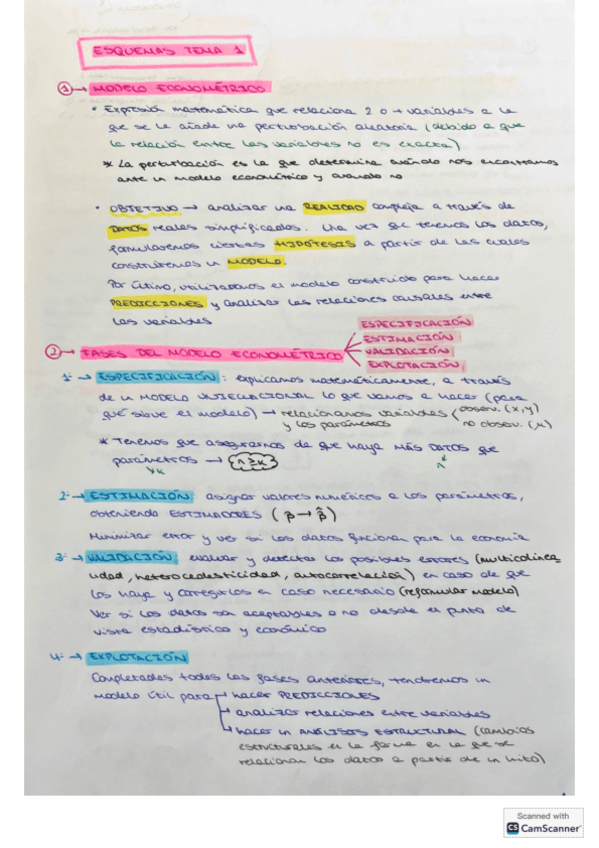 ESQUEMAS TEMA 1
1 → MODELO ECONOMÉTRICO
• Expresión matemática que relaciona 2 o + variables a la
que se le añade una perturbación aleatoria (debido a que
la relación entre las variables no es exacta)
* La perturbación es la que determina cuándo nos encontramos
ante un modelo econométrico y cuando no
• OBJETIVO → analizar una REALIDAD compleja a través de
DATOS reales simplificados. Una vez que tenemos los datos,
formularemos ciertas HIPÓTESIS a partir de las cuales
construiremos un MODELO.
Por último, utilizaremos el modelo construido para hacer
PREDICCIONES y analizar las relaciones causales entre
las variables
2 → FASES DEL MODELO ECONOMÉTRICO
ESPECIFICACIÓN
ESTIMACIÓN
VALIDACIÓN
EXPLOTACIÓN
1- → ESPECIFICACIÓN: explicamos matemáticamente, a través
de un MODELO UNIECUACIONAL lo que vamos a hacer (para
qué sirve el modelo) → relacionamos variables (observ. (x,y)
y los parámetros no observ. (μ)
* Tenemos que asegurarnos de que haya MÁS DATOS que
parámetros → n ≥ k
k n
2- → ESTIMACIÓN: asignar valores numéricos a los parámetros,
obteniendo ESTIMADORES (β → β̂)
Minimizar error y ver si los datos funcionan para la economía
3- → VALIDACIÓN: evaluar y detectar los posibles errores (multicolinea
lidad, heterocedasticidad, autocorrelación) en caso de que
los haya y corregirlos en caso necesario (reformular modelo)
Ver si los datos son aceptables o no desde el punto de
vista estadístico y económico
4- → EXPLOTACIÓN
Completadas todas las fases anteriores, tendremos un
modelo útil para → hacer PREDICCIONES
→ analizar relaciones entre variables
→ hacer un ANÁLISIS ESTRUCTURAL (cambios
estructurales en la forma en la que se
relacionan los datos a partir de un hito)
Scanned with
CS CamScanner